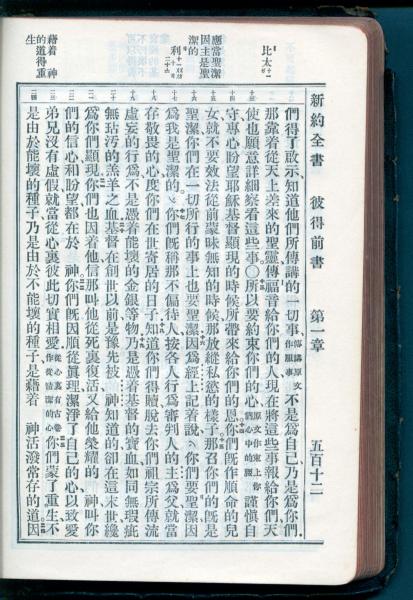 新約全書　彼得前書　第一章　五百十二
們得了啟示、知道他們所傳講的一切事、傳講原文作服事不是爲自己、乃是爲你們、
那靠着從天上差來的聖靈傳福音給你們的人、現在將這些事報給你們、天
使也願意詳細察看這些事、〇所以要約束你們的心、原文作束上你們心中的腰謹愼自
守、專心盼望耶穌基督顯現的時候所帶來給你們的恩、你們旣作順命的兒
女、就不要效法從前蒙昧無知的時候、那放縱私慾的樣子、那召你們的旣是
聖潔、你們在一切所行的事上也要聖潔、因爲經上記着說、你們要聖潔、因
爲我是聖潔的、你們旣稱那不偏待人、按各人行爲審判人的主爲父、就當
存敬畏的心、度你們在世寄居的日子、知道你們得贖、脫去你們祖宗所傳流
虛妄的行爲、不是憑着能壞的金銀等物、乃是憑着基督的寶血、如同無瑕疵
無玷污的羔羊之血、基督在創世以前、是豫先被　神知道的、卻在這末世纔
爲你們顯現、你們也因着他信那叫他從死裏復活、又給他榮耀的　神、叫你
們的信心和盼望、都在於　神、你們旣因順從眞理、潔淨了自己的心、以致愛
弟兄沒有虛假、就當從心裏彼此切實相愛、從心裏有古卷作從清潔的心你們蒙了重生、不
是由於能壞的種子、乃是由於不能壞的種子、是藉着　神活潑常存的道、因
比太十一
應當聖潔
因主是聖
潔的
利十一
藉着　神
的道得重
生